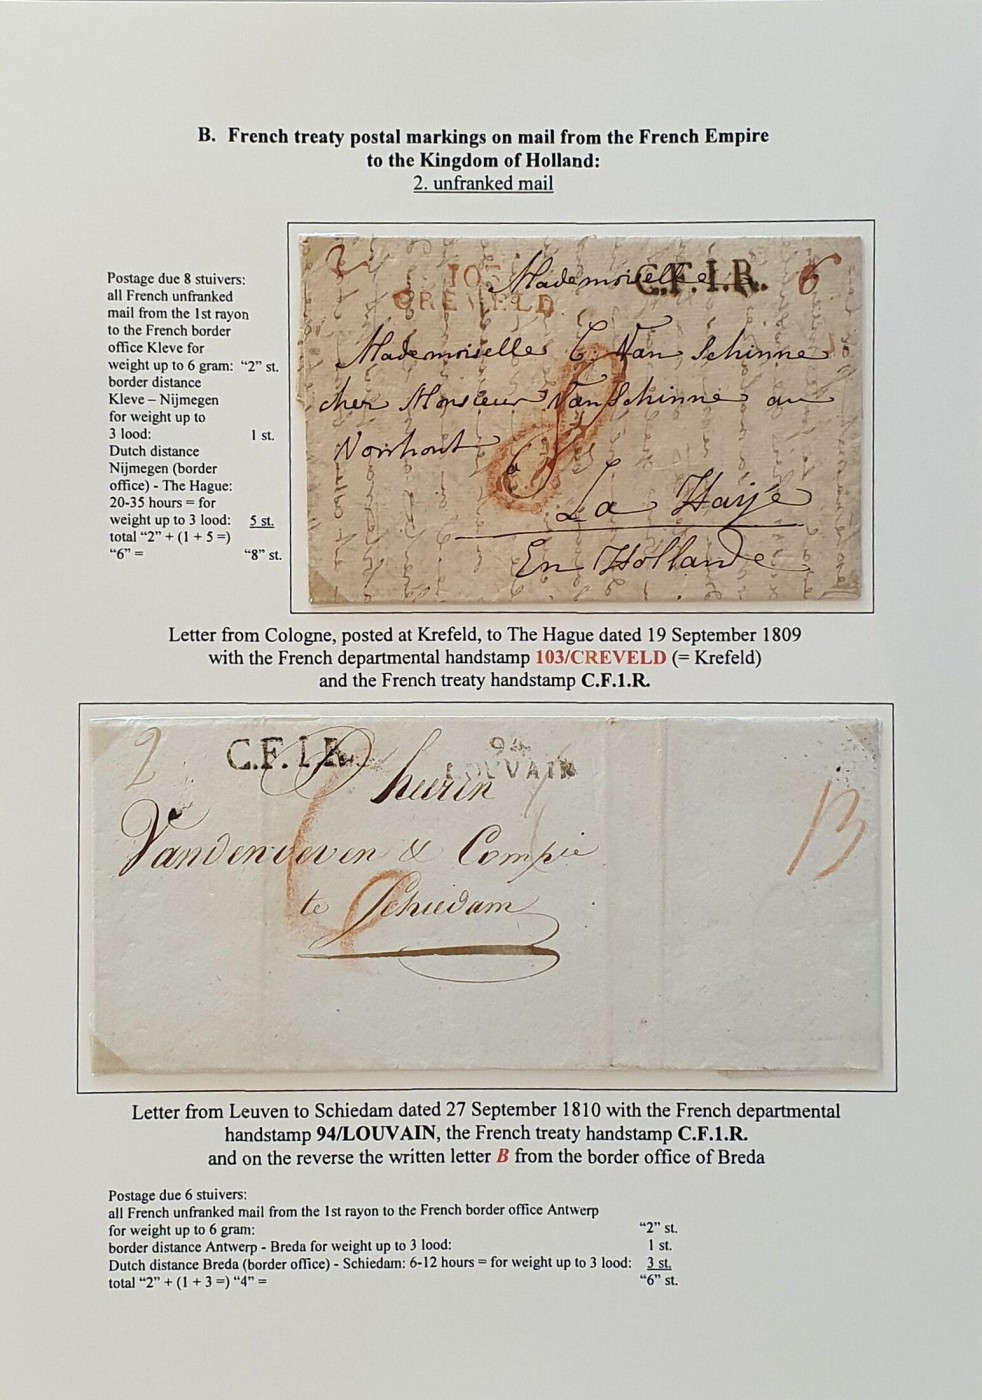 B. French treaty postal markings on mail from the French Empire
to the Kingdom of Holland:
2. unfranked mail
Postage due 8 stuivers:
all French unfranked
mail from the 1st rayon
to the French border
office Kleve for
weight up to 6 gram: “2” st.
border distance
Kleve – Nijmegen
for weight up to
3 lood: 1 st.
Dutch distance
Nijmegen (border
office) - The Hague:
20-35 hours = for
weight up to 3 lood: 5 st.
total “2” + (1 + 5 =)
“6” = “8” st.
2
103
CREVELD
Mademoiselle
C.F.I.R.
6
Mademoiselle C. Van Schinne
cher Monsieur Van Schinne au
Voorhout
8
La Haije
En Hollande
Letter from Cologne, posted at Krefeld, to The Hague dated 19 September 1809
with the French departmental handstamp 103/CREVELD (= Krefeld)
and the French treaty handstamp C.F.1.R.
2
C.F.I.R.
94
LOUVAIN
D heeren
B
Vandenveven & Compie
te Schiedam
6
Letter from Leuven to Schiedam dated 27 September 1810 with the French departmental
handstamp 94/LOUVAIN, the French treaty handstamp C.F.1.R.
and on the reverse the written letter B from the border office of Breda
Postage due 6 stuivers:
all French unfranked mail from the 1st rayon to the French border office Antwerp
for weight up to 6 gram: “2” st.
border distance Antwerp - Breda for weight up to 3 lood: 1 st.
Dutch distance Breda (border office) - Schiedam: 6-12 hours = for weight up to 3 lood: 3 st.
total “2” + (1 + 3 =) “4” = “6” st.